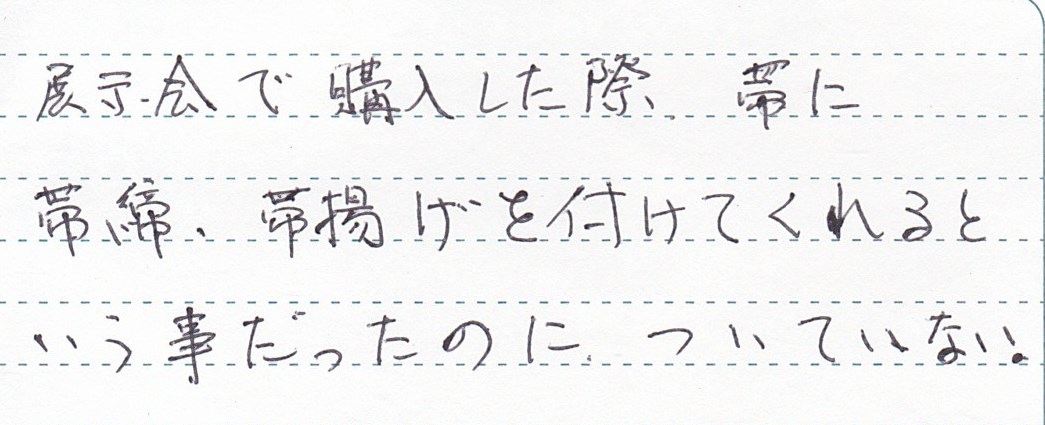 展示会で購入した際、帯に
帯締、帯揚げを付けてくれると
いう事だったのに、ついていない。